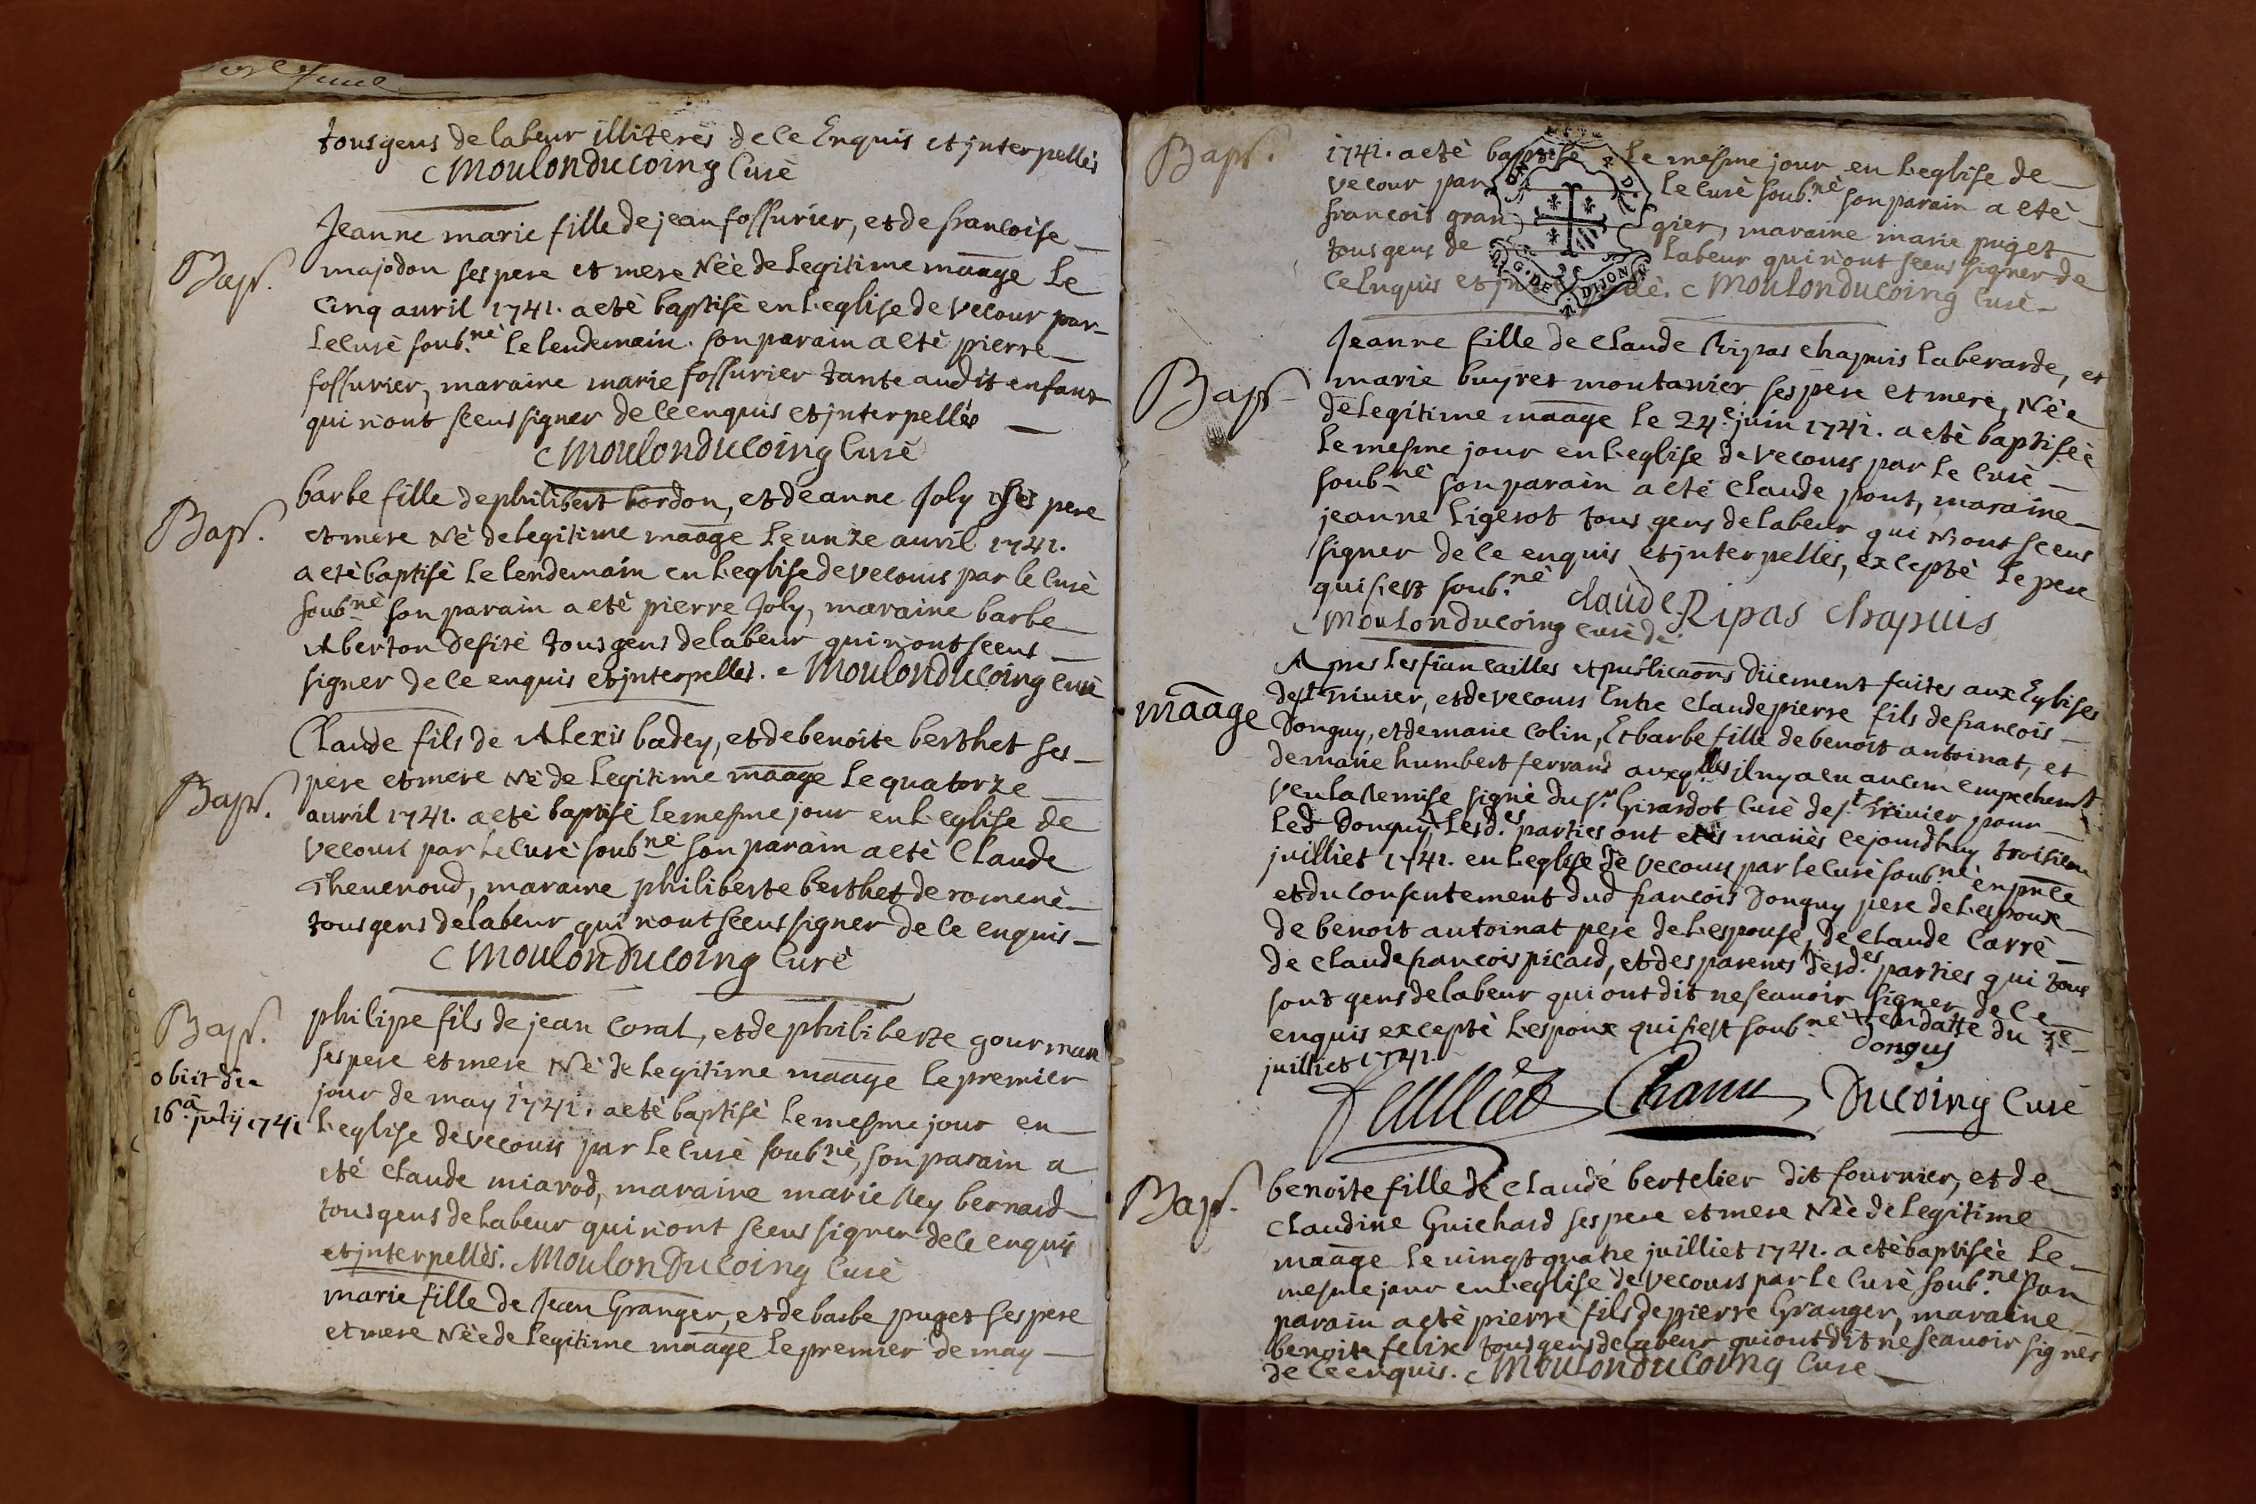 tous gens de labeur illiterés de ce Enquis et jnterpellés
Moulonducoing Curé
Bapt.
Jeanne marie fille de jean fossurier, et de francoise
majodon ses pere et mere Née de Legitime maage Le
Cinq auril 1741. a eté baptisé en L'eglise de Vecour par
Le Curé soub.né Le lendemain. son parain a eté pierre
fossurier, maraine marie fossurier tante audit enfant
qui n'ont sceus signer de ce enquis et jnterpellés
Moulonducoing Curé
Bapt.
barbe fille de philibert bordon, et de anne Joly ses pere
et mere Né de legitime maage Le unze auril 1741.
a eté baptisé Le lendemain en L'eglise de Vecours par le Curé
soub.né son parain a eté pierre Joly, maraine barbe
Aberton desiré tous gens de labeur qui n'ont sceus
signer de ce enquis et jnterpellés. Moulonducoing Curé
Bapt.
Claude fils de Alexis badey, et de benoite berthet ses
pere et mere Né de Legitime maage Le quatorze
auril 1741. a eté baptisé Le mesme jour en L'eglise de
Vecours par Le Curé soub.né son parain a eté Claude
Theuenoud, maraine philiberte berthet de romené
tous gens de labeur qui n'ont sceus signer de ce enquis
Moulonducoing Curé
Bapt.
obiit die
16.a julij 1741
philipe fils de jean Coral, et de philiberte gourman
ses pere et mere Né de Legitime maage Le premier
jour de may 1741. a eté baptisé Le mesme jour en
L'eglise de Vecours par Le Curé soub.né, son parain a
eté Claude miarod, maraine marie Rey bernard
tous gens de Labeur qui n'ont sceus signer de ce enquis
et jnterpellés. Moulonducoing Curé
marie fille de Jean Granger, et de barbe puget ses pere
et mere Née de Legitime maage Le premier de may
Bapt.
1741. a eté baptisé Le mesme jour en L'eglise de
Vecour par Le Curé soub.né son parain a eté
francois gran gier, maraine marie puget
tous gens de Labeur qui n'ont sceus signer de
ce Enquis et Moulonducoing Curé
G. DE DIJON
Bapt
Jeanne fille de Claude Ripas Chapuis Laberarde, et
marie buyret montanier ses pere et mere, Née
de Legitime maage le 24e juin 1741. a eté baptisée
Le mesme jour en L'eglise de Vecours par Le Curé
soub.né son parain a eté Claude pont, maraine
jeanne Ligerot tous gens de labeur qui n'ont sceus
signer de ce enquis et jnterpellés, excepté Le pere
qui s'est soub.né Claude Ripas Chapuis
Moulonducoing Curé de
maage
Apres Les fiancailles et publicaons düement faites aux Eglises
de st Triuier, et de Vecours Entre Claude pierre fils de francois
Donguy, et de marie Colin, Et barbe fille de benoit antoinat, et
de marie humbert ferrand auxqlles il ny a eu aucun empechemt
Veu la Remise signé du sr Girardot Curé de st triuier pour
Led Donguy, Lesd.es parties ont etés mariés ce jourdhuy troisieme
juilliet 1741. en L'eglise de Vecours par le Curé soub.né en pnce
et du Consentement dud francois Donguy pere de L'espoux
de benoit antoinat pere de L'espouse, de Claude Carré
de Claude francois picard, et des parents desd.es parties qui tous
sont gens de labeur qui ont dit ne scauoir signer de ce
enquis excepté L'espoux qui s'est soub.né en datte du 3e
juilliet 1741. Donguy
Chanu Ducoing Curé
Bapt.
benoite fille de Claude bertelier dit fournier, et de
Claudine Guichard ses pere et mere Née de Legitime
maage Le uingt quatre juilliet 1741. a eté baptisée Le
mesme jour en L'eglise de Vecours par Le Curé soub.né Son
parain a eté pierre fils de pierre Granger, maraine
benoite felix tous gens de labeur qui ont dit ne scauoir signer
de ce enquis. Moulonducoing Curé